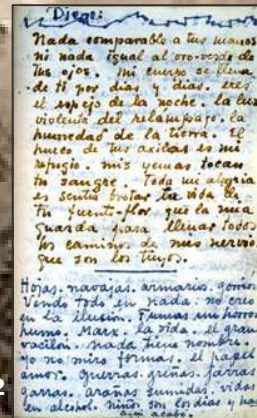 Diego:
Nada comparable a tus manos
ni nada igual al oro-verde de
tus ojos. mi cuerpo se llena
de ti por días y días. eres
el espejo de la noche. la luz
violenta del relámpago. la
humedad de la tierra. El
hueco de tus axilas es mi
refugio. mis yemas tocan
tu sangre. Toda mi alegría
es sentir brotar la vida de
tu fuente-flor que la mia
guarda para llenar todos
los caminos de mis nervios
que son los tuyos.
Hojas. navajas. armarios. gorrión
Vendo todo en nada. no creo
en la ilusión. fumas un horror
humo. Marx. la vida. el gran
vacilón. nada tiene nombre.
yo no miro formas. el papel
amor. guerras. greñas. jarras
garras. arañas sumidas. vidas
en alcohol. niños son los días y
acabo.
2